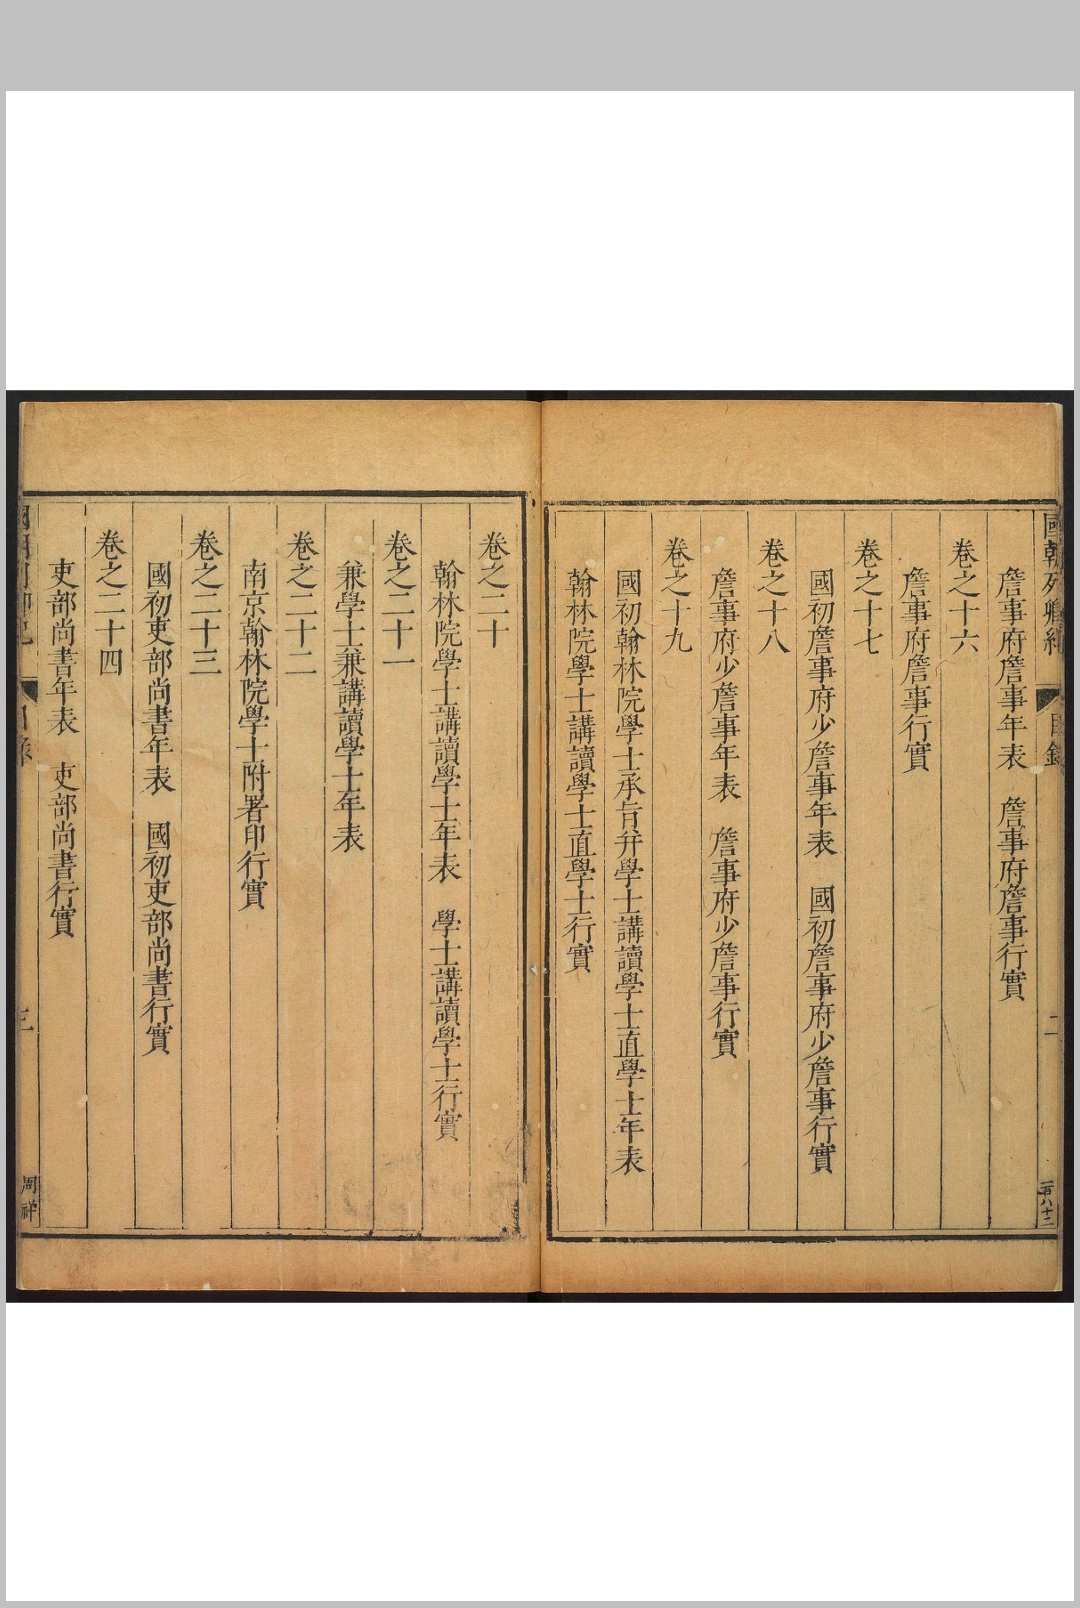 國朝列卿紀 目錄 二 一百八十二
詹事府詹事年表 詹事府詹事行實
卷之十六
詹事府詹事行實
卷之十七
國初詹事府少詹事年表 國初詹事府少詹事行實
卷之十八
詹事府少詹事年表 詹事府少詹事行實
卷之十九
國初翰林院學士承旨并學士講讀學士直學士年表
翰林院學士講讀學士直學士行實
卷之二十
翰林院學士講讀學士年表 學士講讀學士行實
卷之二十一
兼學士兼講讀學士年表
卷之二十二
南京翰林院學士附署印行實
卷之二十三
國初吏部尚書年表 國初吏部尚書行實
卷之二十四
吏部尚書年表 吏部尚書行實
三 周祥